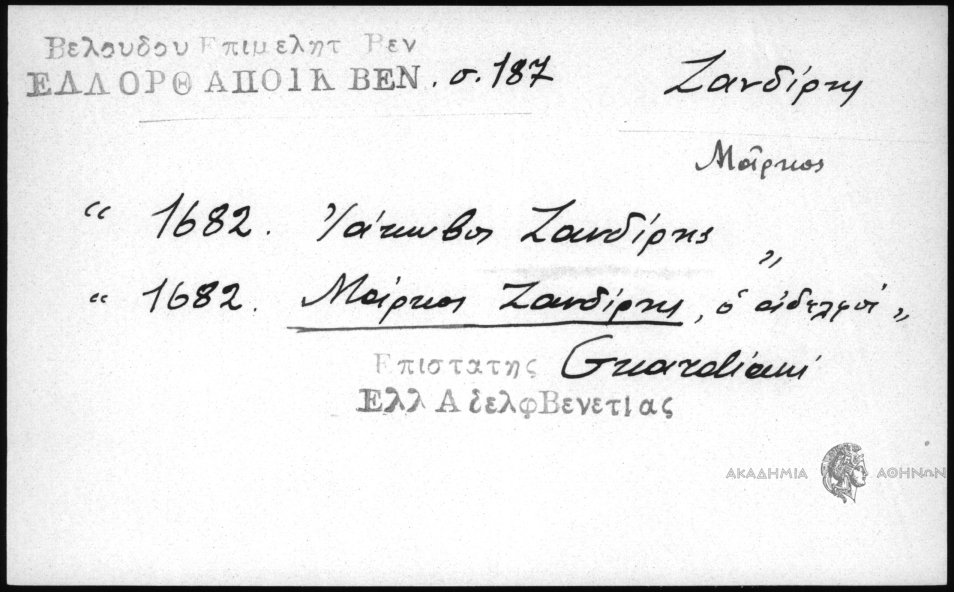 Βελουδου Επιμελητ Βεν
ΕΛΛ ΟΡΘ ΑΠΟΙΚ ΒΕΝ. σ. 187
Ζανδίρης
Μάρκος
“ 1682. Ἰάκωβος Ζανδίρης „
“ 1682. Μάρκος Ζανδίρης, ὁ ἀδελφὸς „
Επιστατης Guardiani
Ελλ Αδελφ Βενετιας
ΑΚΑΔΗΜΙΑ ΑΘΗΝΩΝ